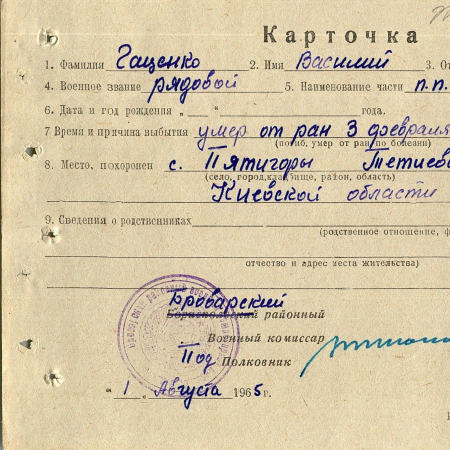 Карточка
1. Фамилия Гащенко 2. Имя Василий 3. От
4. Военное звание рядовой 5. Наименование части п.п.
6. Дата и год рождения „ — “ года.
7 Время и причина выбытия умер от ран 3 февраля
(погиб, умер от ран по болезни)
8. Место, похоронен с. Пятигоры Тетиев
(село, город, кладбище, район, область)
Киевской области
9. Сведения о родственниках
(родственное отношение, ф
отчество и адрес места жительства)
Броварский
Бориспольский районный
Военный комиссар
Под Полковник
„ 1 „ Августа 1965 г.